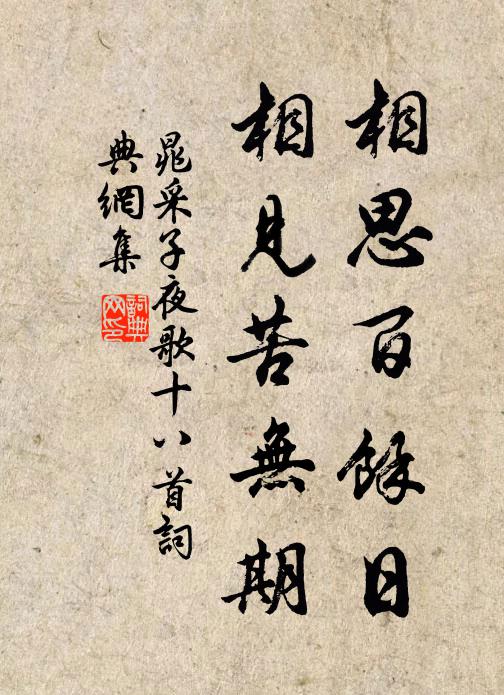 相思百餘日
相見苦無期
晁采子夜歌十八首詞
典網集
詞典網印